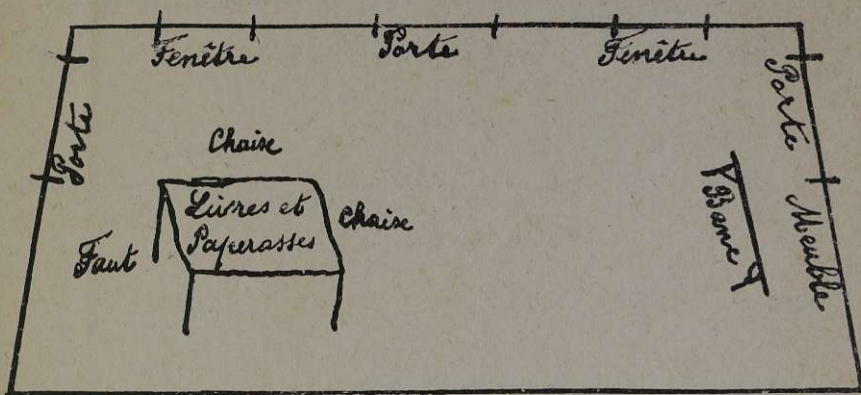 Fenêtre
Porte
Fenêtre
Porte
Porte
Chaise
Livres et
Paperasses
Chaise
Faut
Banc
Meuble